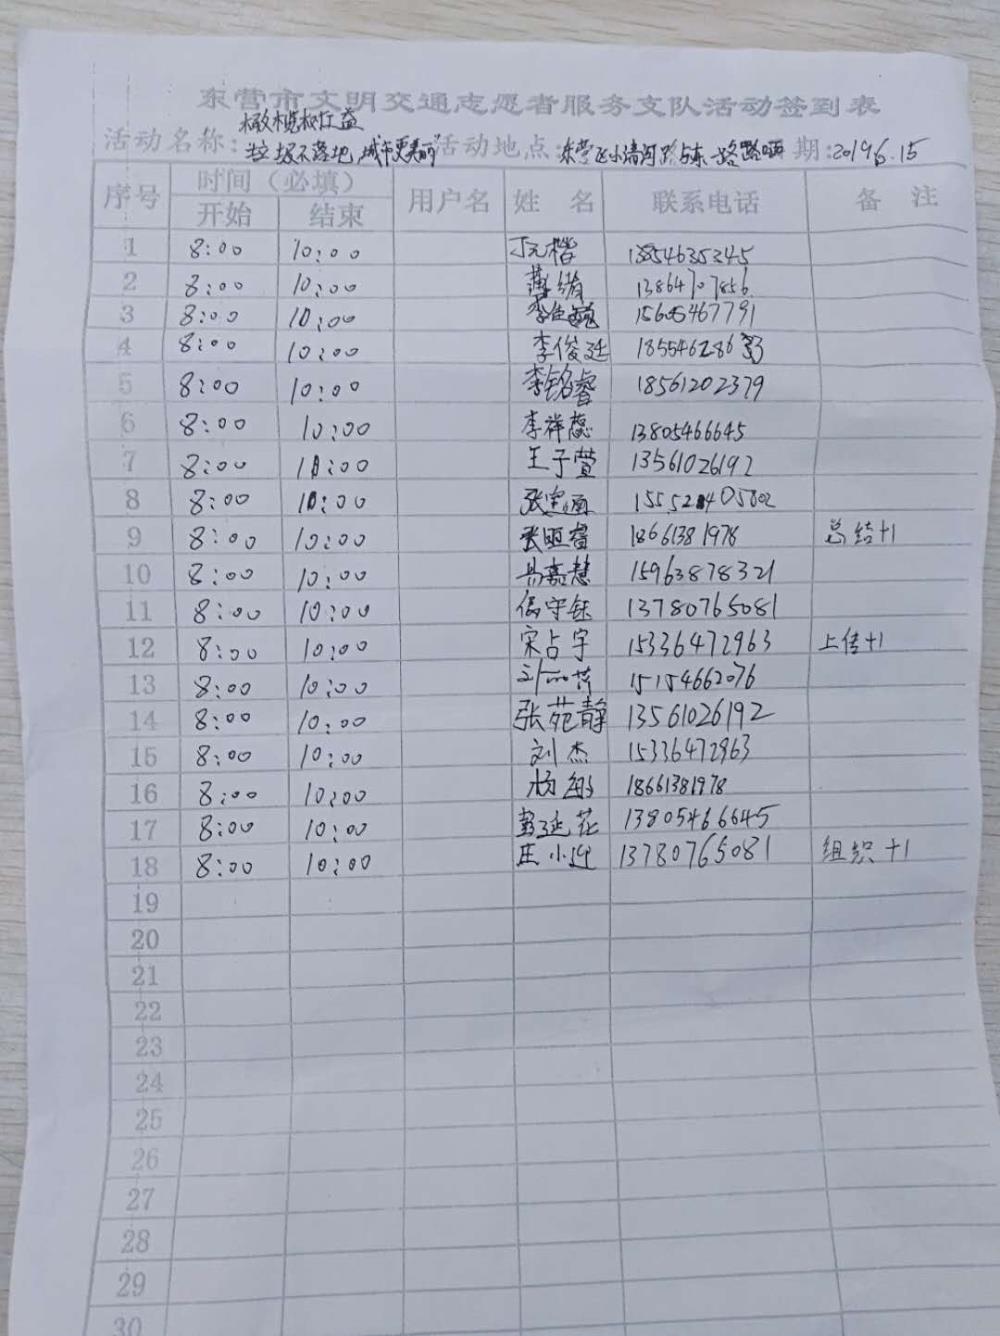 东营市文明交通志愿者服务支队活动签到表
橄榄树公益
活动名称: 垃圾不落地,城市更美丽" 活动地点: 东营区小清河路与东一路路口 期:2019.6.15
序号 时间(必填) 用户名 姓 名 联系电话 备 注
开始 结束
1 8:00 10:00 丁元楷 13854635345
2 8:00 10:00 薄绪 13864707856
3 8:00 10:00 15605467791
4 8:00 10:00 李俊廷
5 8:00 10:00 李铭睿 18561202379
6 8:00 10:00 李祥蕊 13805466645
7 8:00 10:00 王子萱 13561026192
8 8:00 10:00
9 8:00 10:00 张照睿 18661381978 总结+1
10 8:00 10:00 易嘉慧 15963878321
11 8:00 10:00 侯守钰 13780765081
12 8:00 10:00 宋占宇 15336472963 上传+1
13 8:00 10:00 15154662076
14 8:00 10:00 张苑静 13561026192
15 8:00 10:00 刘杰 15336472963
16 8:00 10:00 杨敏 18661381978
17 8:00 10:00 彭延花 13805466645
18 8:00 10:00 庄小迎 13780765081 组织+1
19
20
21
22
23
24
25
26
27
28
29
30